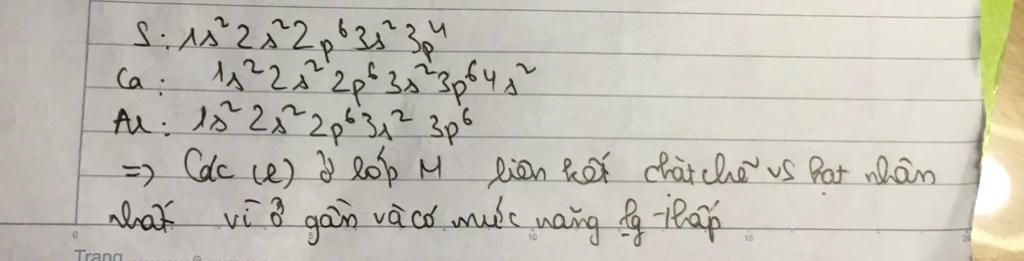 S: 1s² 2s² 2p⁶ 3s² 3p⁴
Ca: 1s² 2s² 2p⁶ 3s² 3p⁶ 4s²
1s² 2s² 2p⁶ 3s² 3p⁶
=> Các (e) ở lớp M liên kết chặt chẽ vs hạt nhân
nhất vì ở gần và có mức năng lg thấp
0 10 15 20
Trang